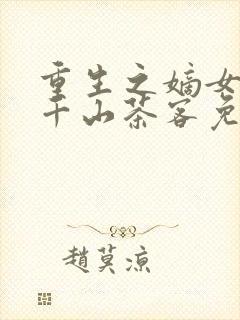 重生之嫡女
千山茶客免
趙莫涼